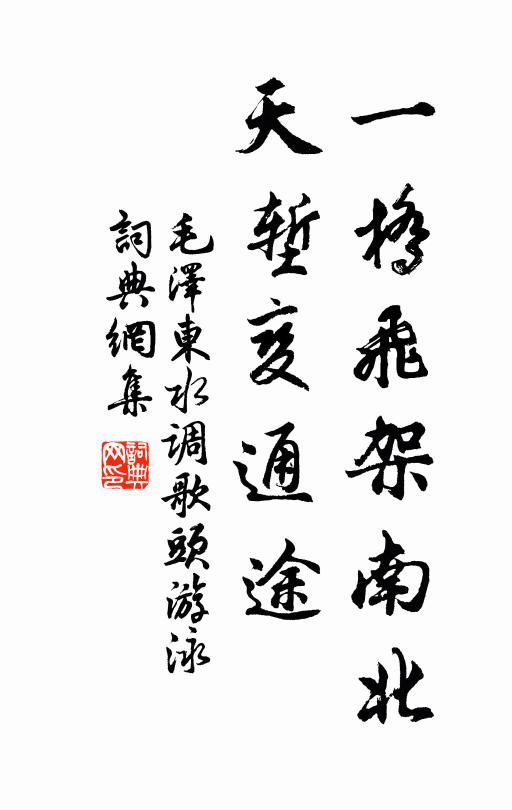 一橋飛架南北
天塹变通途
毛澤東水调歌頭游泳
詞典網集
詞典网印